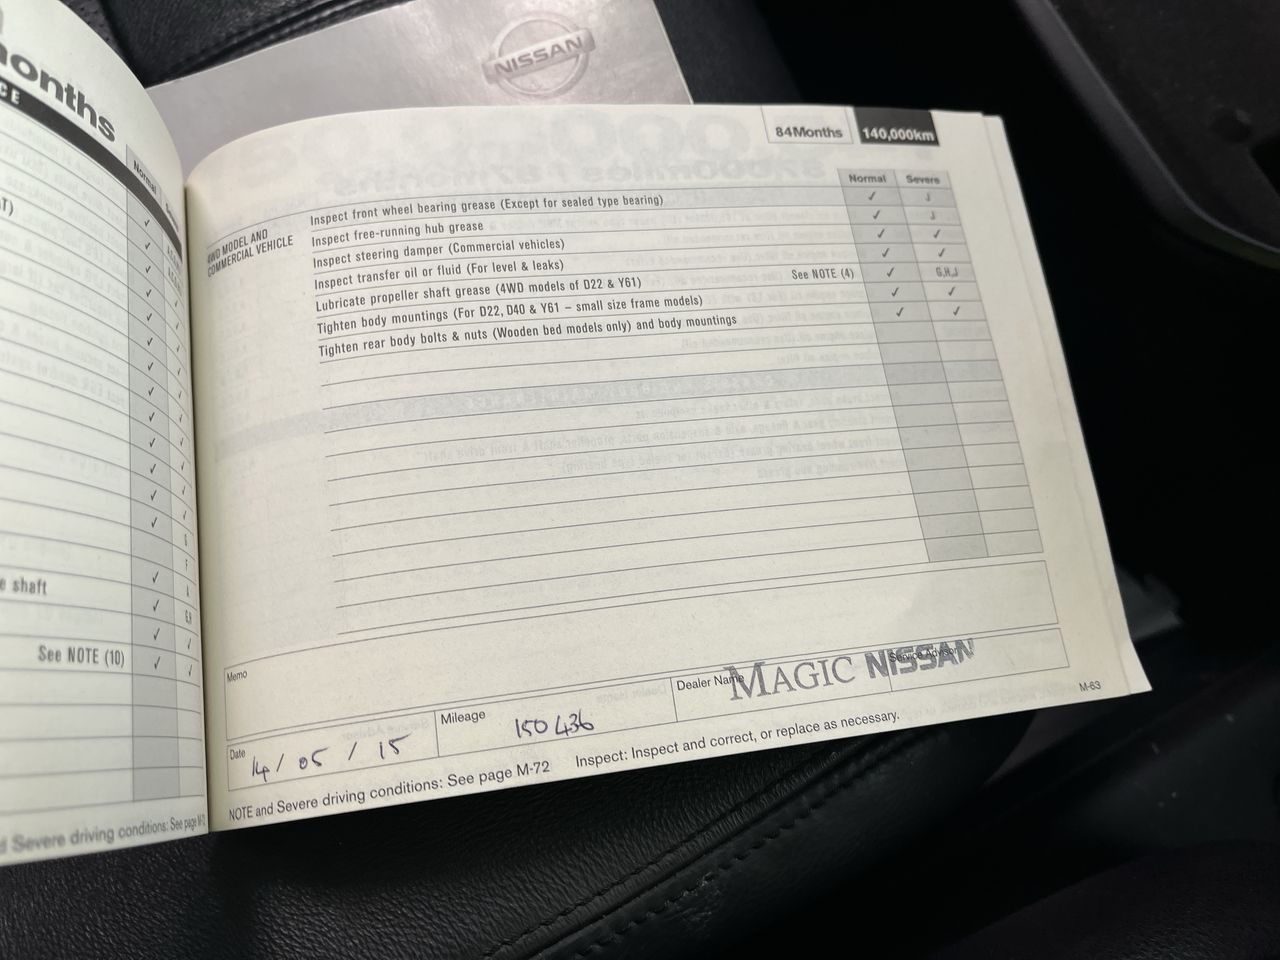 NISSAN
months
84Months 140,000km
Normal Severe
4WD MODEL AND COMMERCIAL VEHICLE
Inspect front wheel bearing grease (Except for sealed type bearing) ✓ J
Inspect free-running hub grease ✓ J
Inspect steering damper (Commercial vehicles) ✓ ✓
Inspect transfer oil or fluid (For level & leaks) ✓ ✓
Lubricate propeller shaft grease (4WD models of D22 & Y61) See NOTE (4) ✓ G,H,J
Tighten body mountings (For D22, D40 & Y61 – small size frame models) ✓ ✓
Tighten rear body bolts & nuts (Wooden bed models only) and body mountings ✓ ✓
Normal
e shaft
See NOTE (10) ✓ ✓
Memo
Date 14/05/15 Mileage 150436 Dealer Name MAGIC NISSAN Service Advisor
NOTE and Severe driving conditions: See page M-72 Inspect: Inspect and correct, or replace as necessary.
M-63
Severe driving conditions: See page